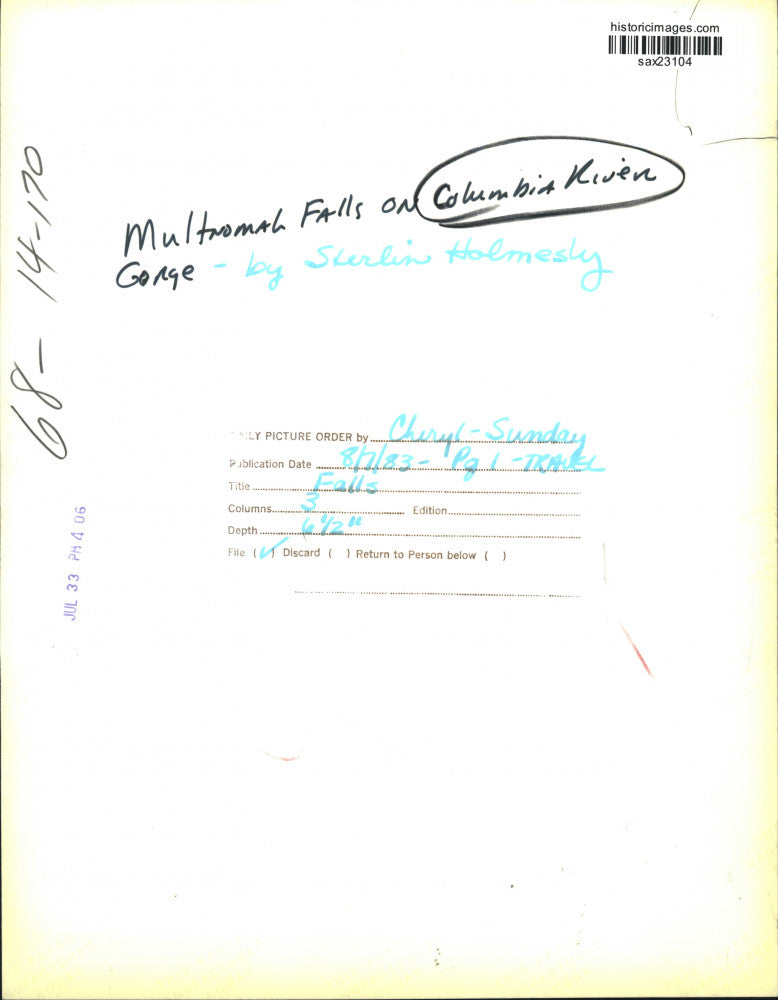 historicimages.com
sax23104
Multnomah Falls on Columbia River
Gorge - by Sterlin Holmesly
68- 14-170
LY PICTURE ORDER by Cheryl - Sunday
Publication Date 8/7/83 - Pg 1 - TRAVEL
Title Falls
Columns 3 Edition
Depth 6 1/2"
File (✓) Discard ( ) Return to Person below ( )
JUL 33 PM 4 06